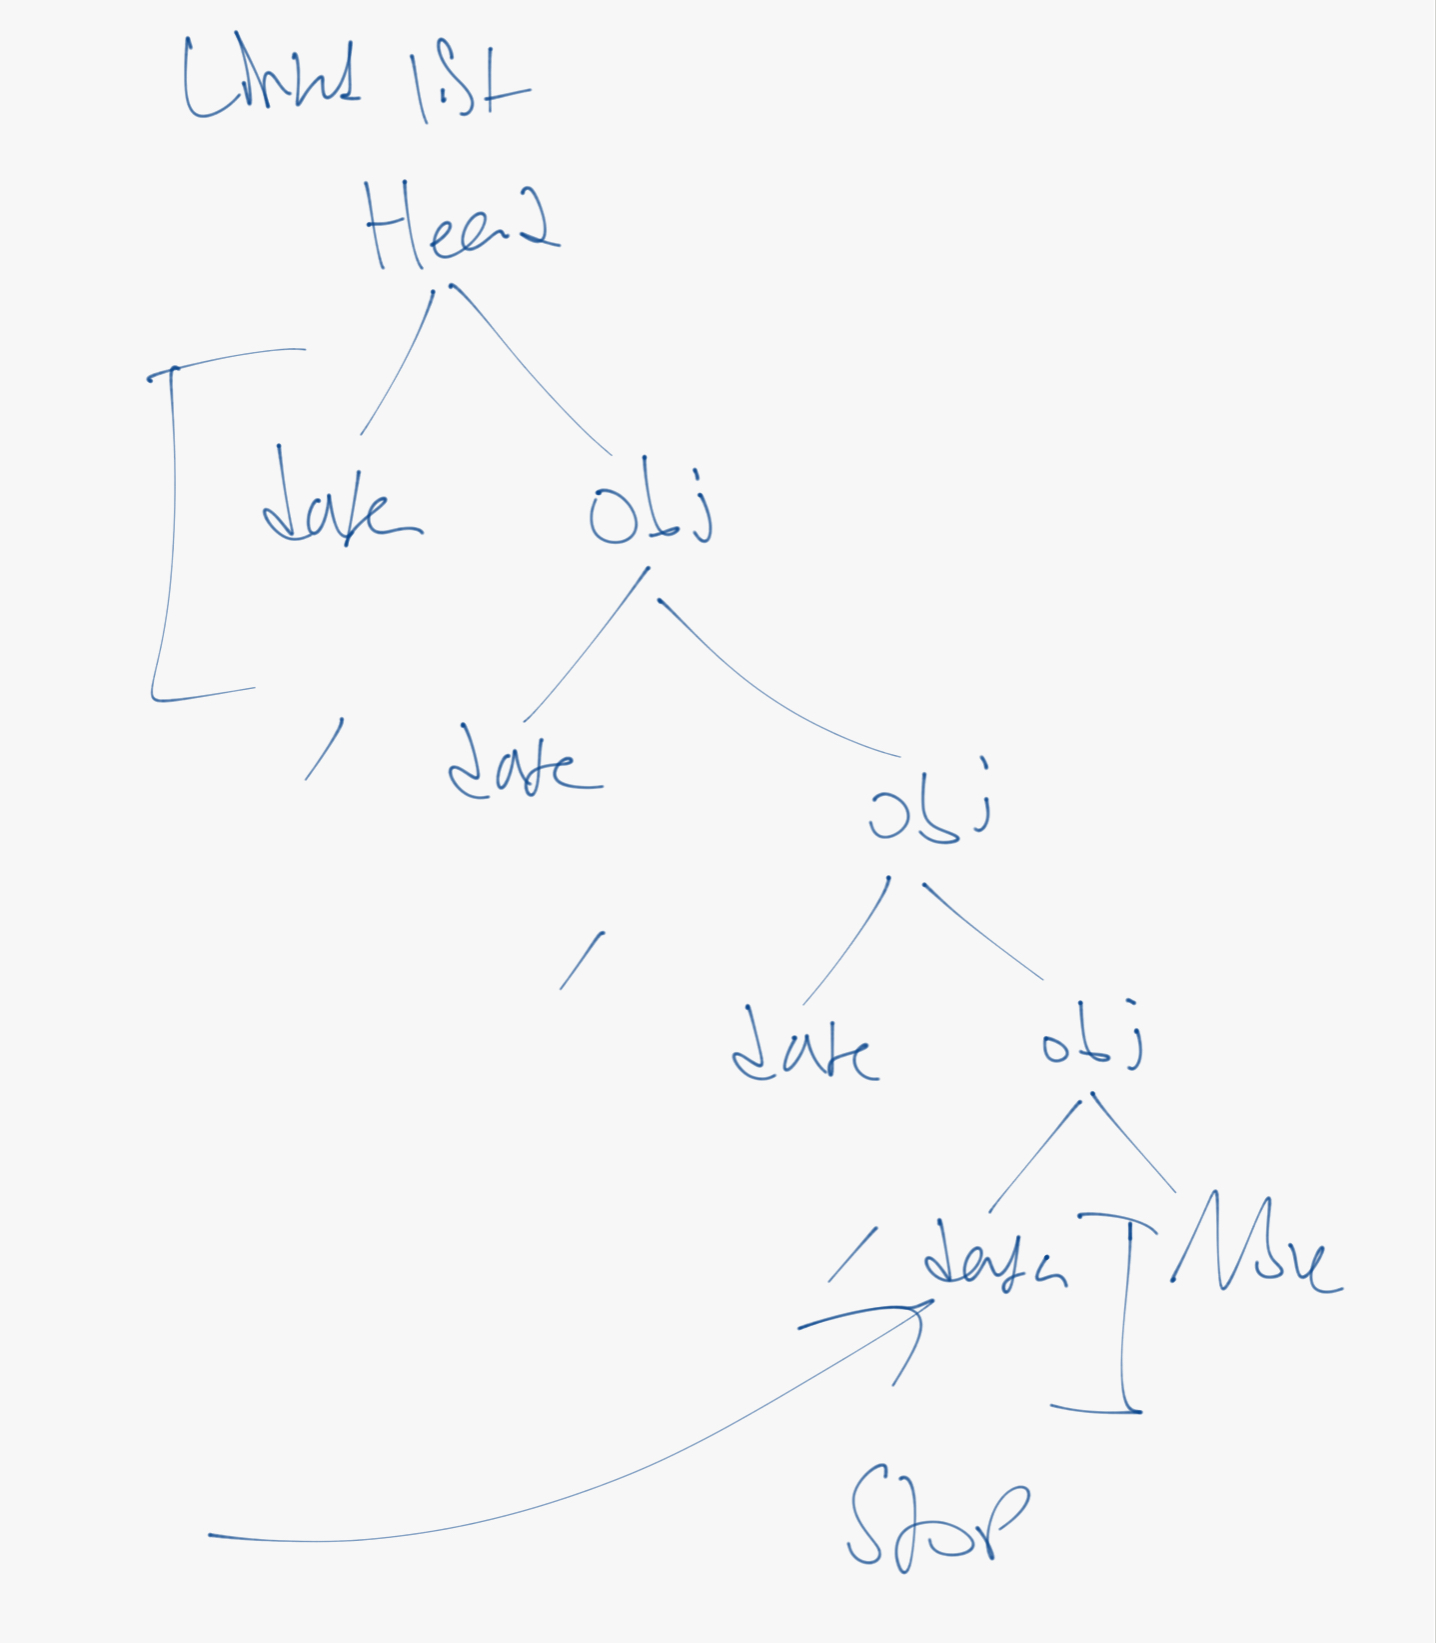 Linked list
Head
data obj
[ , data obj
, data obj
, data ] None
Stop